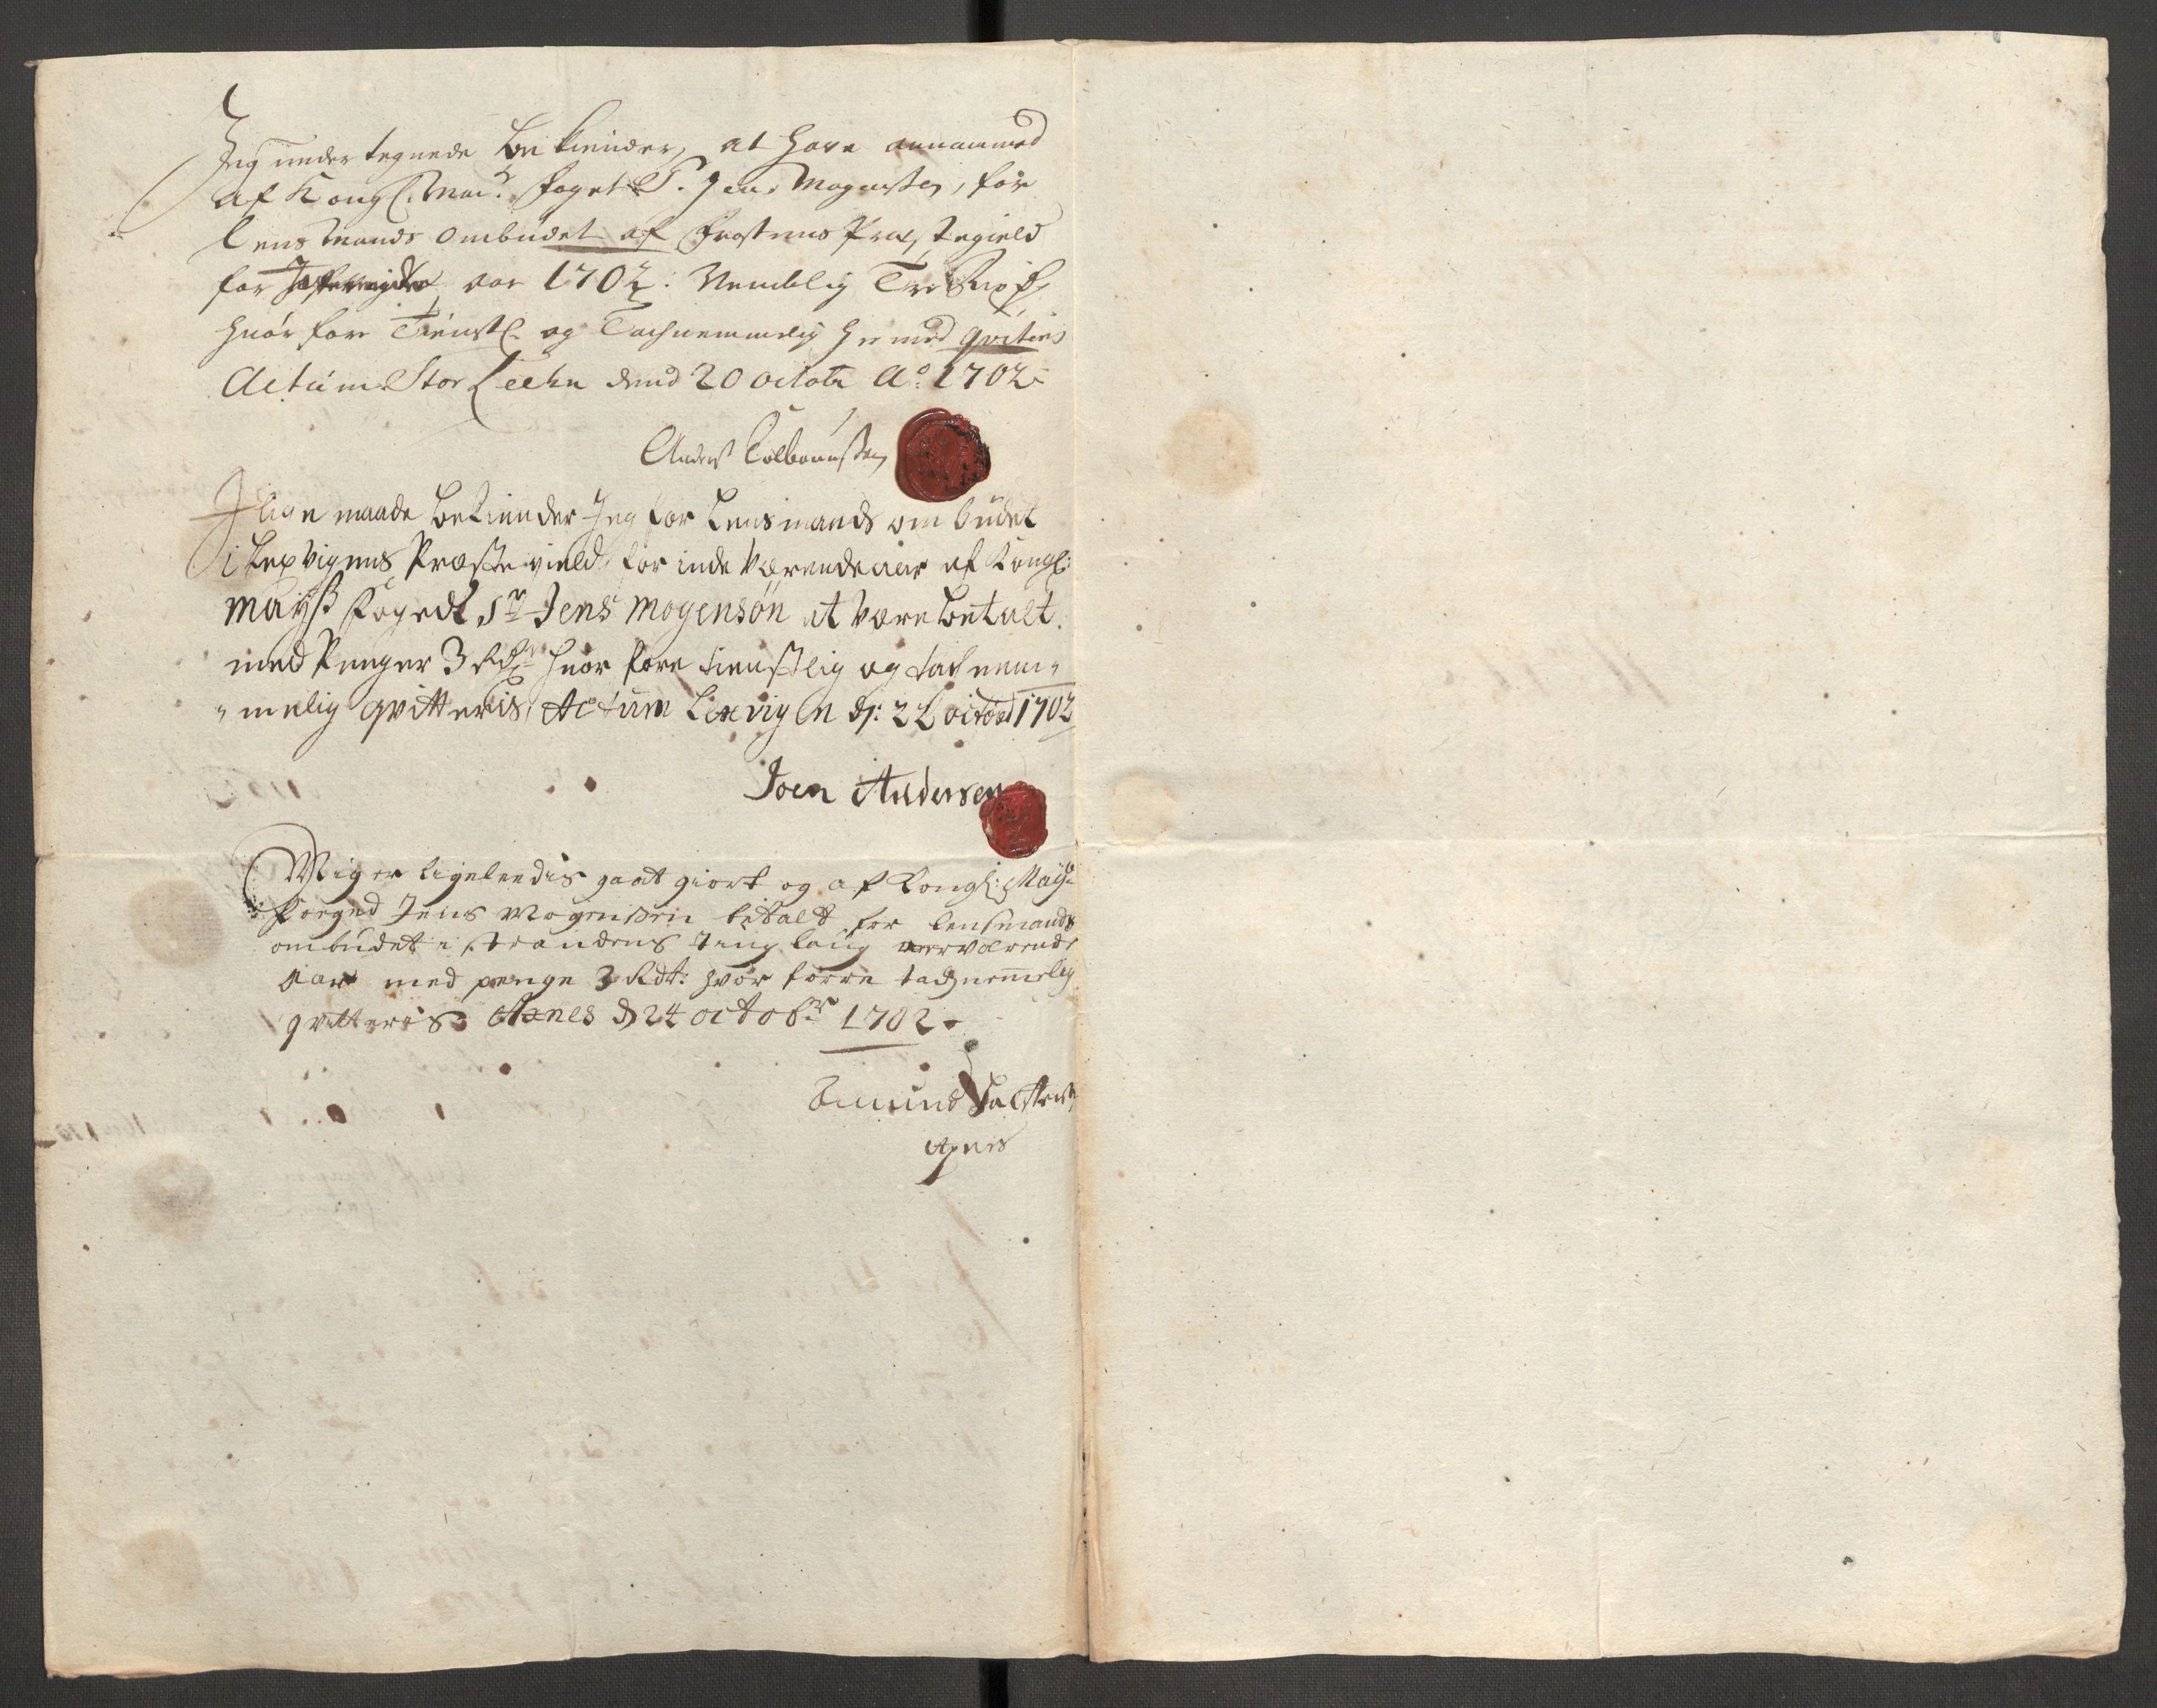 Jeg under tegnede Bekiender, at have annammed
af Kongl. May. foget S. Jens Mogensen, for
Lens Mands ombudet af Frostens Præstegield
for aar 1702: Nemblig Tre
huor fore Tienstl. og Tachnemmelig hermed qviteris
Actum Stor Leehn dend 20 octobr Ao. 1702
Anders Colbannsen
J lige maade bekiender Jeg for Lensmands ombudet
i Lexvigens Præstegield, for indeværende aar af Kongl:
Mayst foged Sr Jens Mogensøn at være betalt.
med Penger 3 Rdr huor fore tienstlig og tachnem-
melig qvitteris, Actum Lexvigen d: 22 octobr 1702
Joen Andersen
Mig er ligeleedis gaat giort og af Kongl: Mayst
foeged Jens Mogensen betalt for lensmands
ombudet i Strandens Tinglaug nerværende
aar med penge 3 Rdr: hvor forre tachnemelig
qvitteris Axnes d 24 octobr 1702
Amund
Axnes